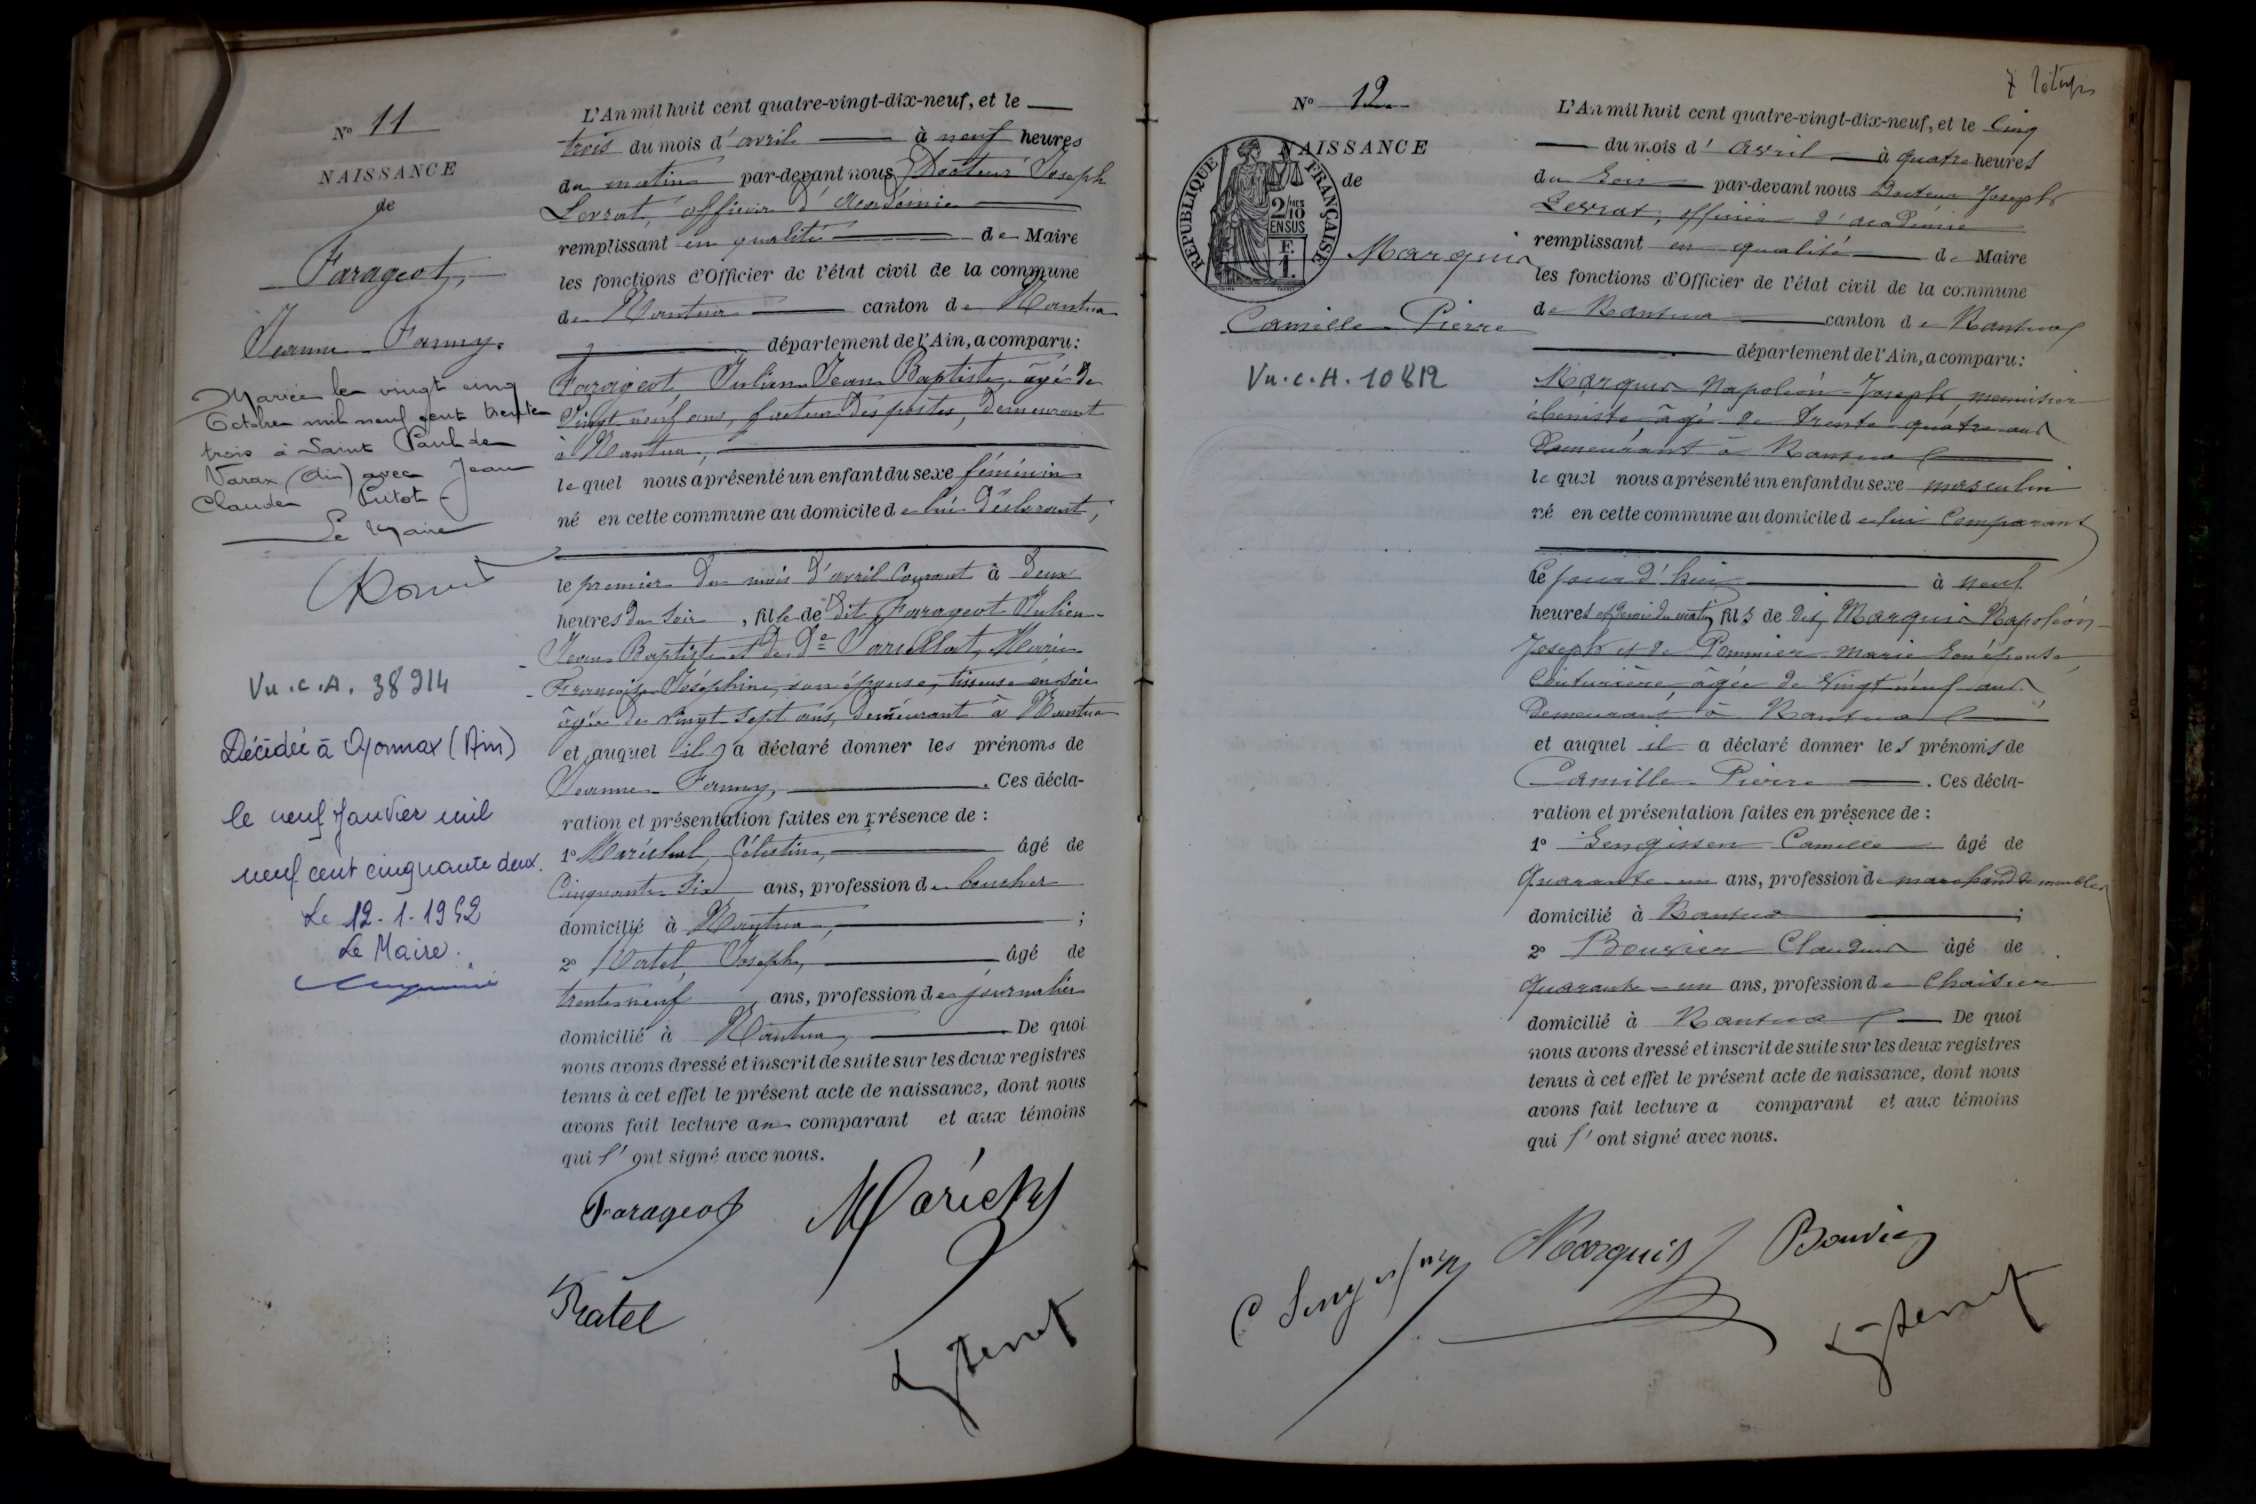 N° 11
NAISSANCE
de
Farageot,
Jeanne Fanny.
Mariée le vingt cinq
Octobre mil neuf cent trente
trois à Saint Paul de
Varax (Ain) avec Jean
Claude Putot
Le Maire
Vu. C. A. 38914
Décédée à Oyonnax (Ain)
le neuf Janvier mil
neuf cent cinquante deux.
Le 12-1-1952
Le Maire.
L'An mil huit cent quatre-vingt-dix-neuf, et le
trois du mois d'avril à neuf heures
du matin par-devant nous Docteur Joseph
Levrat, officier d'Académie
remplissant en qualité de Maire
les fonctions d'Officier de l'état civil de la commune
de Nantua canton de Nantua
département de l'Ain, a comparu:
Farageot, Julien Jean Baptiste, âgé de
vingt neuf ans, facteur des postes, demeurant
à Nantua,
lequel nous a présenté un enfant du sexe féminin
né en cette commune au domicile de lui déclarant,
le premier du mois d'avril courant à deux
heures du soir, fille de dit Farageot Julien
Jean Baptiste et de De Marie
Françoise Joséphine, son épouse, tisseuse en soie
âgée de vingt sept ans, demeurant à Nantua
et auquel il a déclaré donner les prénoms de
Jeanne Fanny, . Ces décla-
ration et présentation faites en présence de :
1° Maréchal, Célestin, âgé de
Cinquante six ans, profession de boucher
domicilié à Nantua, ;
2° Joseph, âgé de
trente neuf ans, profession de journalier
domicilié à Nantua, De quoi
nous avons dressé et inscrit de suite sur les deux registres
tenus à cet effet le présent acte de naissance, dont nous
avons fait lecture au comparant et aux témoins
qui l'ont signé avec nous.
Farageot Maréchal
Ratel
N° 12
NAISSANCE
de
REPUBLIQUE FRANÇAISE
2/10 EN SUS
F. 1.
Marquis
Camille Pierre
Vu. C. A. 10812
L'An mil huit cent quatre-vingt-dix-neuf, et le Cinq
du mois d'Avril à quatre heures
du Soir par-devant nous Docteur Joseph
Levrat, officier d'académie
remplissant en qualité de Maire
les fonctions d'Officier de l'état civil de la commune
de Nantua canton de Nantua
département de l'Ain, a comparu:
Marquis Napoléon Joseph, menuisier
ébéniste âgé de trente quatre ans
Demeurant à Nantua
lequel nous a présenté un enfant du sexe masculin
né en cette commune au domicile de lui Comparant
Ce jour d'hui à neuf
heures et demie du matin, fils de dit Marquis Napoléon
Joseph et de Pommier Marie Son épouse,
Couturière, âgée de vingt neuf ans
Demeurant à Nantua
et auquel il a déclaré donner les prénoms de
Camille Pierre . Ces décla-
ration et présentation faites en présence de :
1° Camille âgé de
Quarante un ans, profession de marchand de meubles
domicilié à Nantua ;
2° Bouvier Claudius âgé de
Quarante un ans, profession de Chaisier
domicilié à Nantua De quoi
nous avons dressé et inscrit de suite sur les deux registres
tenus à cet effet le présent acte de naissance, dont nous
avons fait lecture a comparant et aux témoins
qui l'ont signé avec nous.
Marquis Bouvier